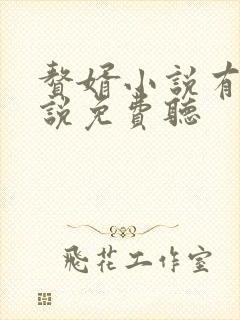 贅婿小說有
說免費聽
飛花工作室